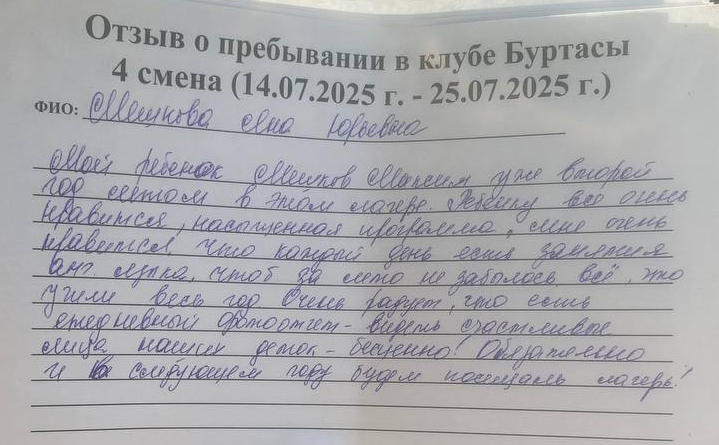 Отзыв о пребывании в клубе Буртасы
4 смена (14.07.2025 г. - 25.07.2025 г.)
ФИО: Мешкова Яна Юрьевна
Мой ребенок Мешков Максим уже второй
год летом в этом лагере. Ребенку всё очень
нравится, насыщенная программа, мне очень
нравится, что каждый день есть занятия
анг языка, чтоб за лето не забылось всё, что
учили весь год Очень радует, что есть
ежедневный фотоотчет - видеть счастливые
лица наших деток - бесценно! Обязательно
и в следующем году будем посещать лагерь!